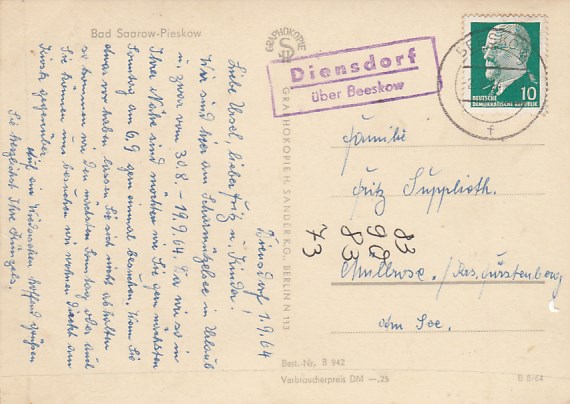 Bad Saarow-Pieskow
Diensdorf 1.9.64
Liebe Ursel, lieber Fritz u. Kinder!
Wir sind hier am Scharmützelsee in Urlaub
u. zwar vom 30.8. - 19.9.64. Da wir so in
Ihrer Nähe sind möchten wir Sie gern nächsten
Sonntag am 6.9. gern einmal besuchen. Wenn Sie
etwas vor haben lassen Sie sich nicht abhalten
so kommen wir den nächsten Sonntag oder auch
Sie können uns besuchen wir wohnen direkt am
gegenüber.
Auf ein Wiedersehen hoffend grüßen
Sie herzlichst Ihre
GRAPHOKOPIE
GRAPHOKOPIE H. SANDER K.G., BERLIN N 113
Diensdorf
über Beeskow
BEESKOW
f
10
DEUTSCHE
DEMOKRATISCHE REPUBLIK
Familie
Fritz Supplieth.
83
90
83
73
Müllrose. /Krs. Fürstenberg
am See.
Best.-Nr. B 942
Verbraucherpreis DM —.25
B 8/64